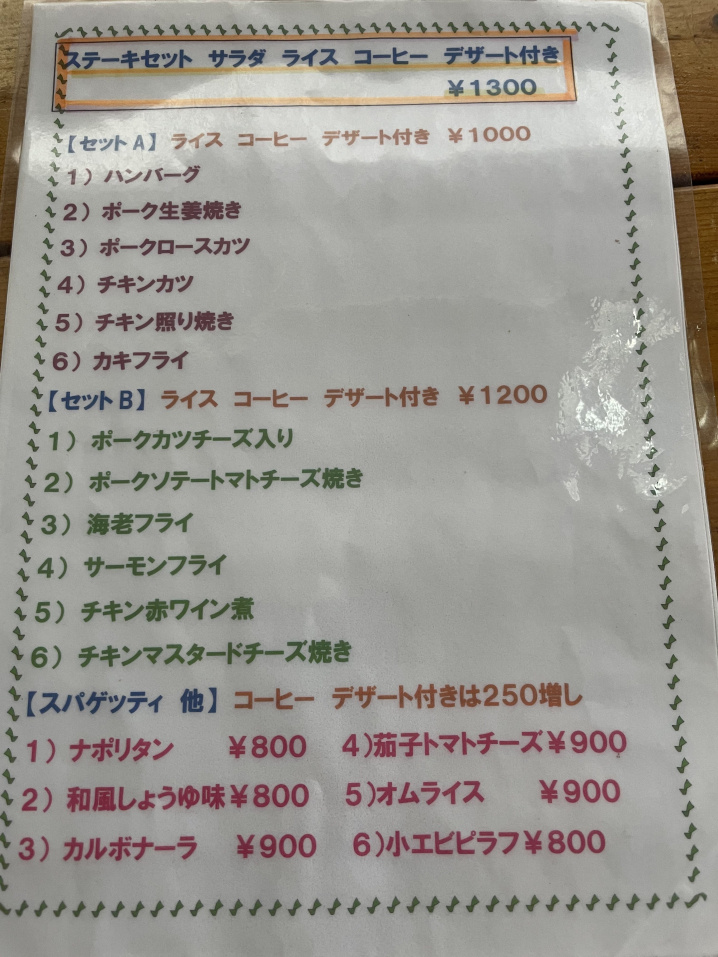 ステーキセット サラダ ライス コーヒー デザート付き
￥1300
【セットA】 ライス コーヒー デザート付き ￥1000
1）ハンバーグ
2）ポーク生姜焼き
3）ポークロースカツ
4）チキンカツ
5）チキン照り焼き
6）カキフライ
【セットB】 ライス コーヒー デザート付き ￥1200
1）ポークカツチーズ入り
2）ポークソテートマトチーズ焼き
3）海老フライ
4）サーモンフライ
5）チキン赤ワイン煮
6）チキンマスタードチーズ焼き
【スパゲッティ 他】 コーヒー デザート付きは250増し
1）ナポリタン ￥800 4)茄子トマトチーズ￥900
2）和風しょうゆ味￥800 5)オムライス ￥900
3）カルボナーラ ￥900 6)小エビピラフ￥800